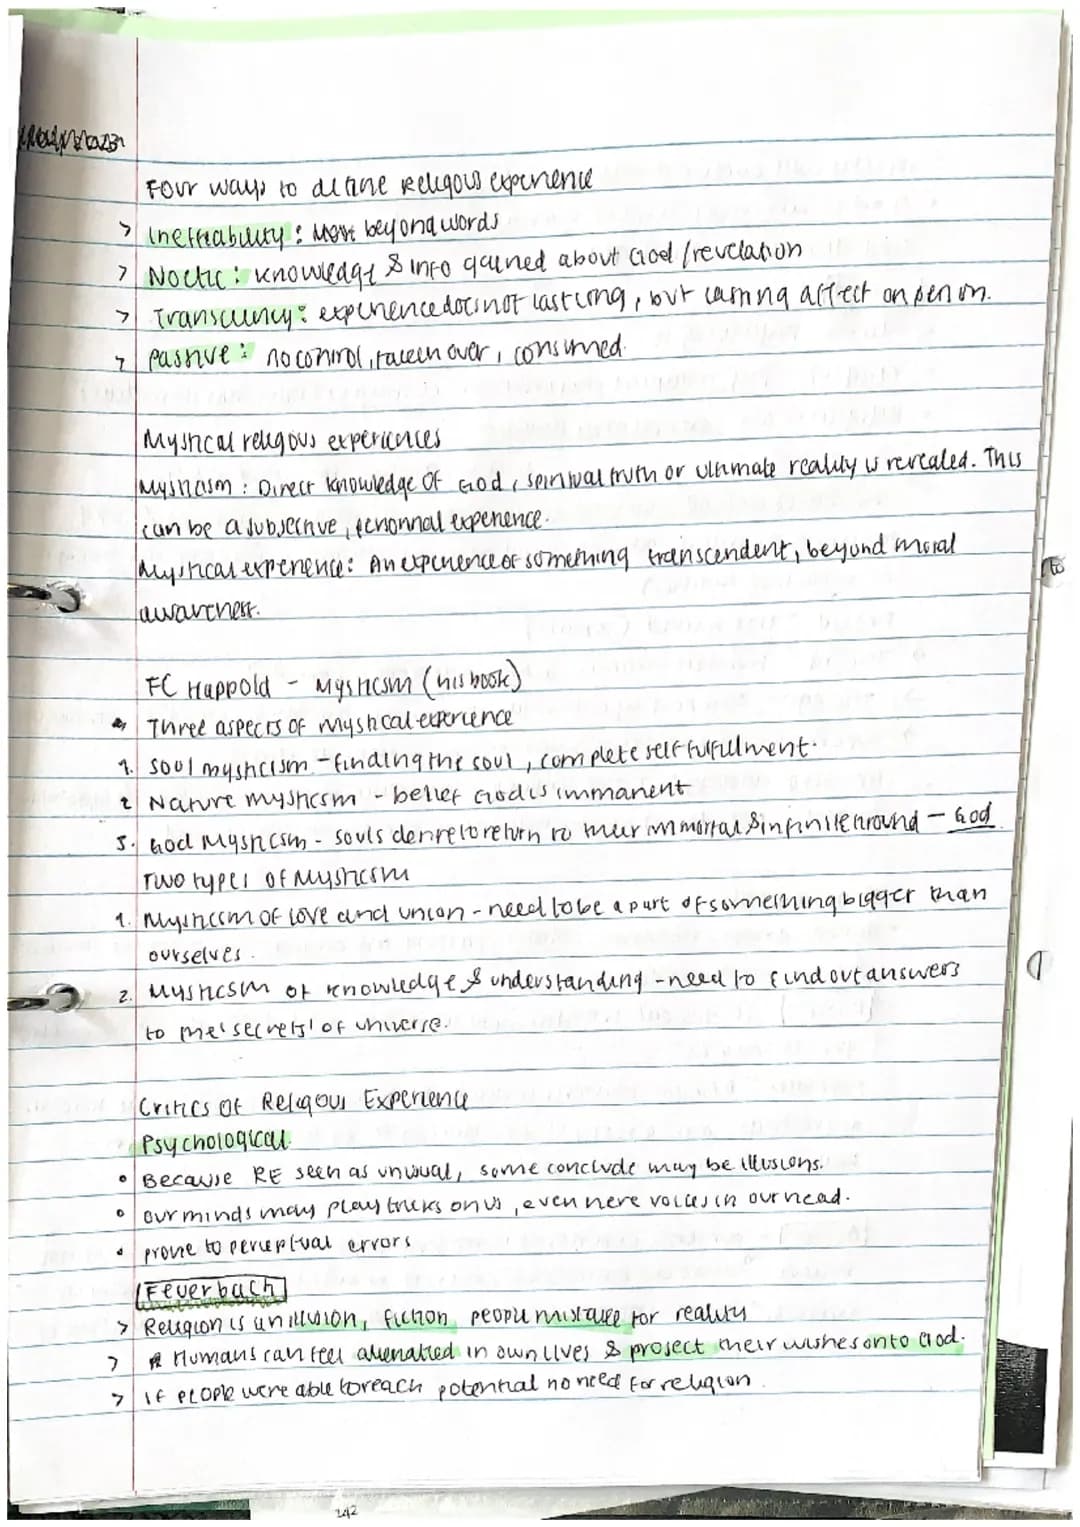 Four ways to define Religous experience
> Ineffability: beyond words
> Noetic: knowledge & info gained about God/revelation
> Transciency: experience does not last long, but lasting affect on person.
> Passive: no control, taken over, consumed.
Mystical religous experiences
Mysticism: Direct knowledge of God, spiritual truth or ultimate reality is revealed. This
can be a subjective, personnal experience.
Mystical experience: An experience of something transcendent, beyond moral
awareness.
FC Happold - Mysticsm (his book)
Three aspects of mystical experience
1. Soul mysticism - finding the soul, complete self fulfullment.
2 Nature mysticsm - belief God is immanent
3. God Mysticsm - souls desire to return to their immortal & infinite ground - God
Two types of Mysticsm
1. Mysticcsm of love and union - need to be a part of something bigger than
ourselves.
2. Mysticsm of knowledge & understanding - need to find out answers
to the 'secrets' of universe.
Critics of Religous Experience
Psychological
• Because RE seen as unusual, some conclude may be illusions.
• our minds may play tricks on us, even here voices in our head.
• prone to perceptual errors
Feuerbach
> Religion is an illusion, fiction people mistake for reality
> Humans can feel alienated in own lives & project their wishes onto God.
> If people were able to reach potential no need for religion.
242